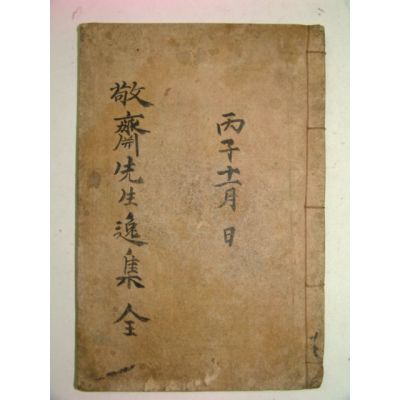 丙子十一月 日
敬齋先生逸集 全